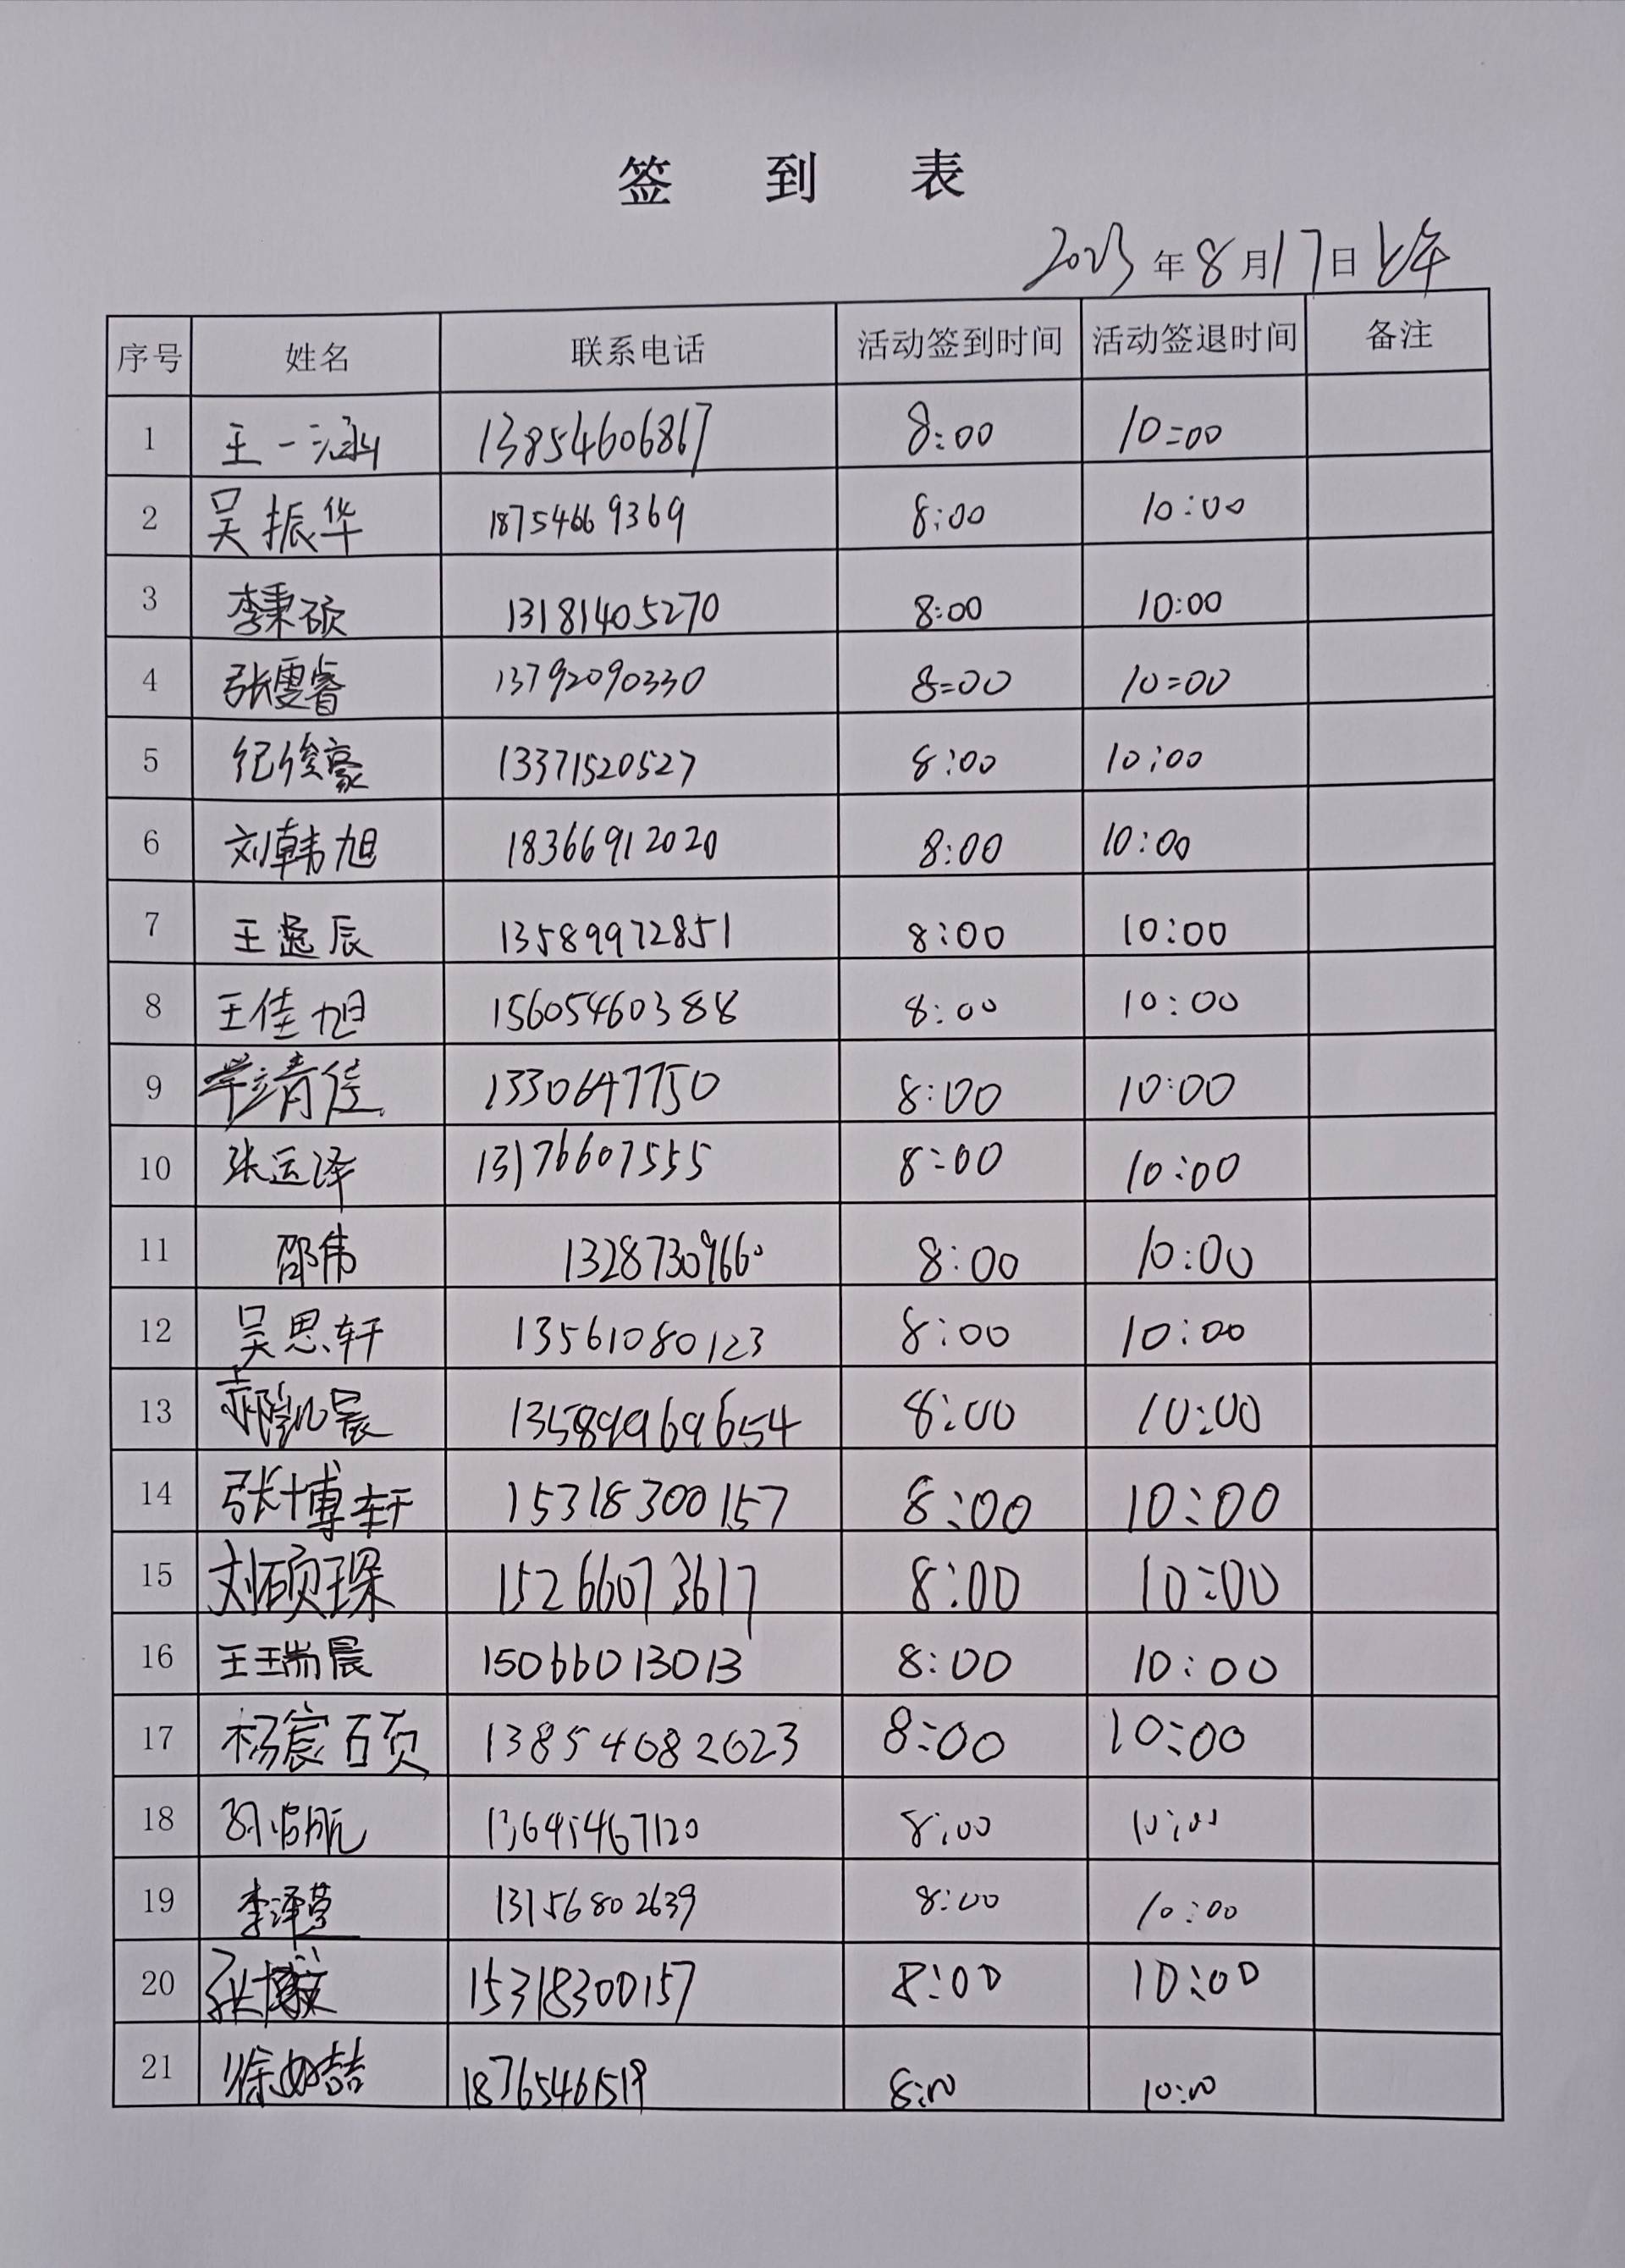 签 到 表
2023年8月17日上午
序号 姓名 联系电话 活动签到时间 活动签退时间 备注
1 王一涵 13854606867 8:00 10:00
2 吴振华 18754669369 8:00 10:00
3 李秉硕 13181405270 8:00 10:00
4 张雯睿 13792090330 8:00 10:00
5 纪俊豪 13371520527 8:00 10:00
6 刘韩旭 18366912020 8:00 10:00
7 王逸辰 13589972851 8:00 10:00
8 王佳旭 15605460388 8:00 10:00
9 1330647750 8:00 10:00
10 张运泽 13176607555 8:00 10:00
11 邵伟 13287309660 8:00 10:00
12 吴思轩 13561080123 8:00 10:00
13 郝凯晨 13589969654 8:00 10:00
14 张博轩 15318300157 8:00 10:00
15 刘硕琛 15266073617 8:00 10:00
16 王瑞晨 15066013013 8:00 10:00
17 杨宸硕 13854082023 8:00 10:00
18 13645467120 8:00 10:00
19 李泽萱 13156802639 8:00 10:00
20 15318300157 8:00 10:00
21 18765461519 8:00 10:00